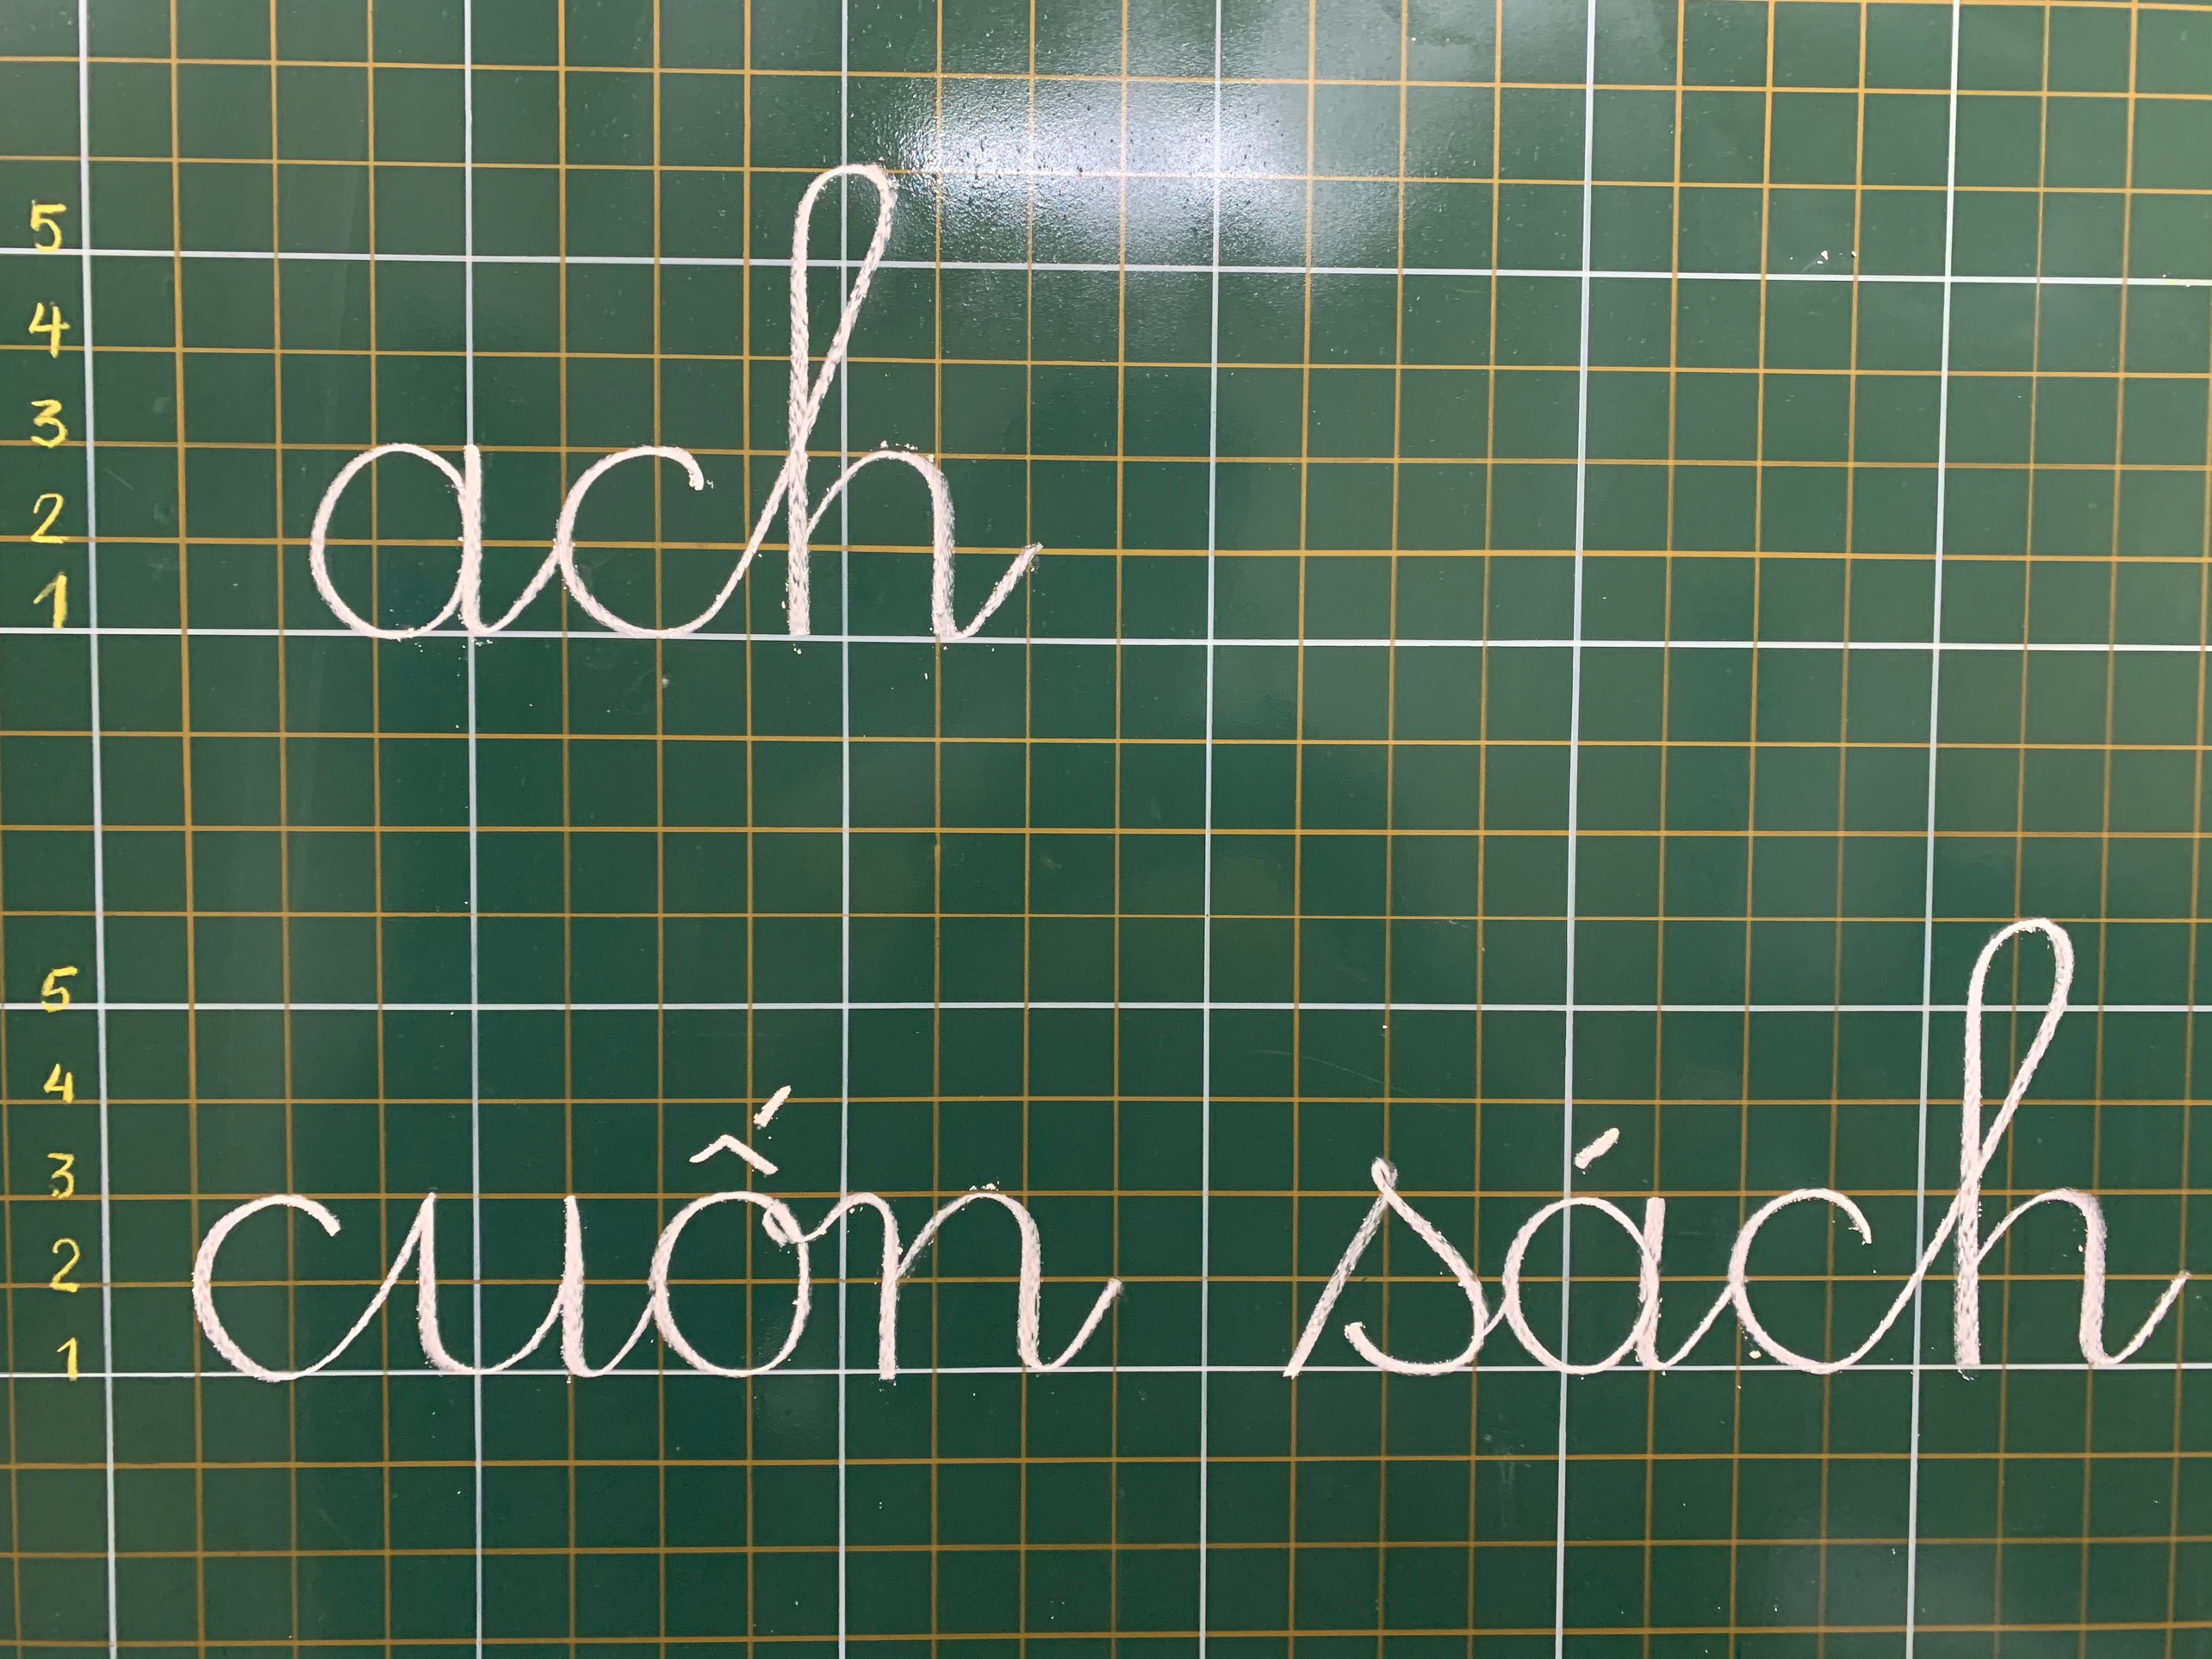 5
4
3
2
1
ach
5
4
3
2
1
cuốn sách